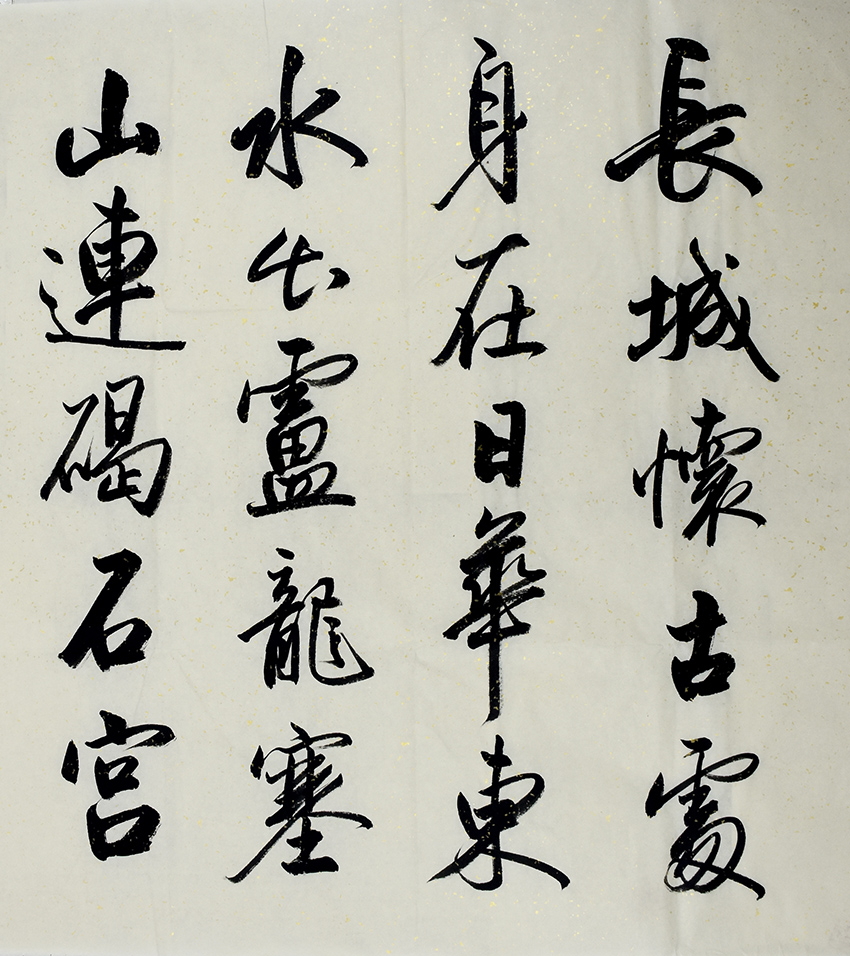 長城懷古處
身在日華東
水出盧龍塞
山連碣石宮